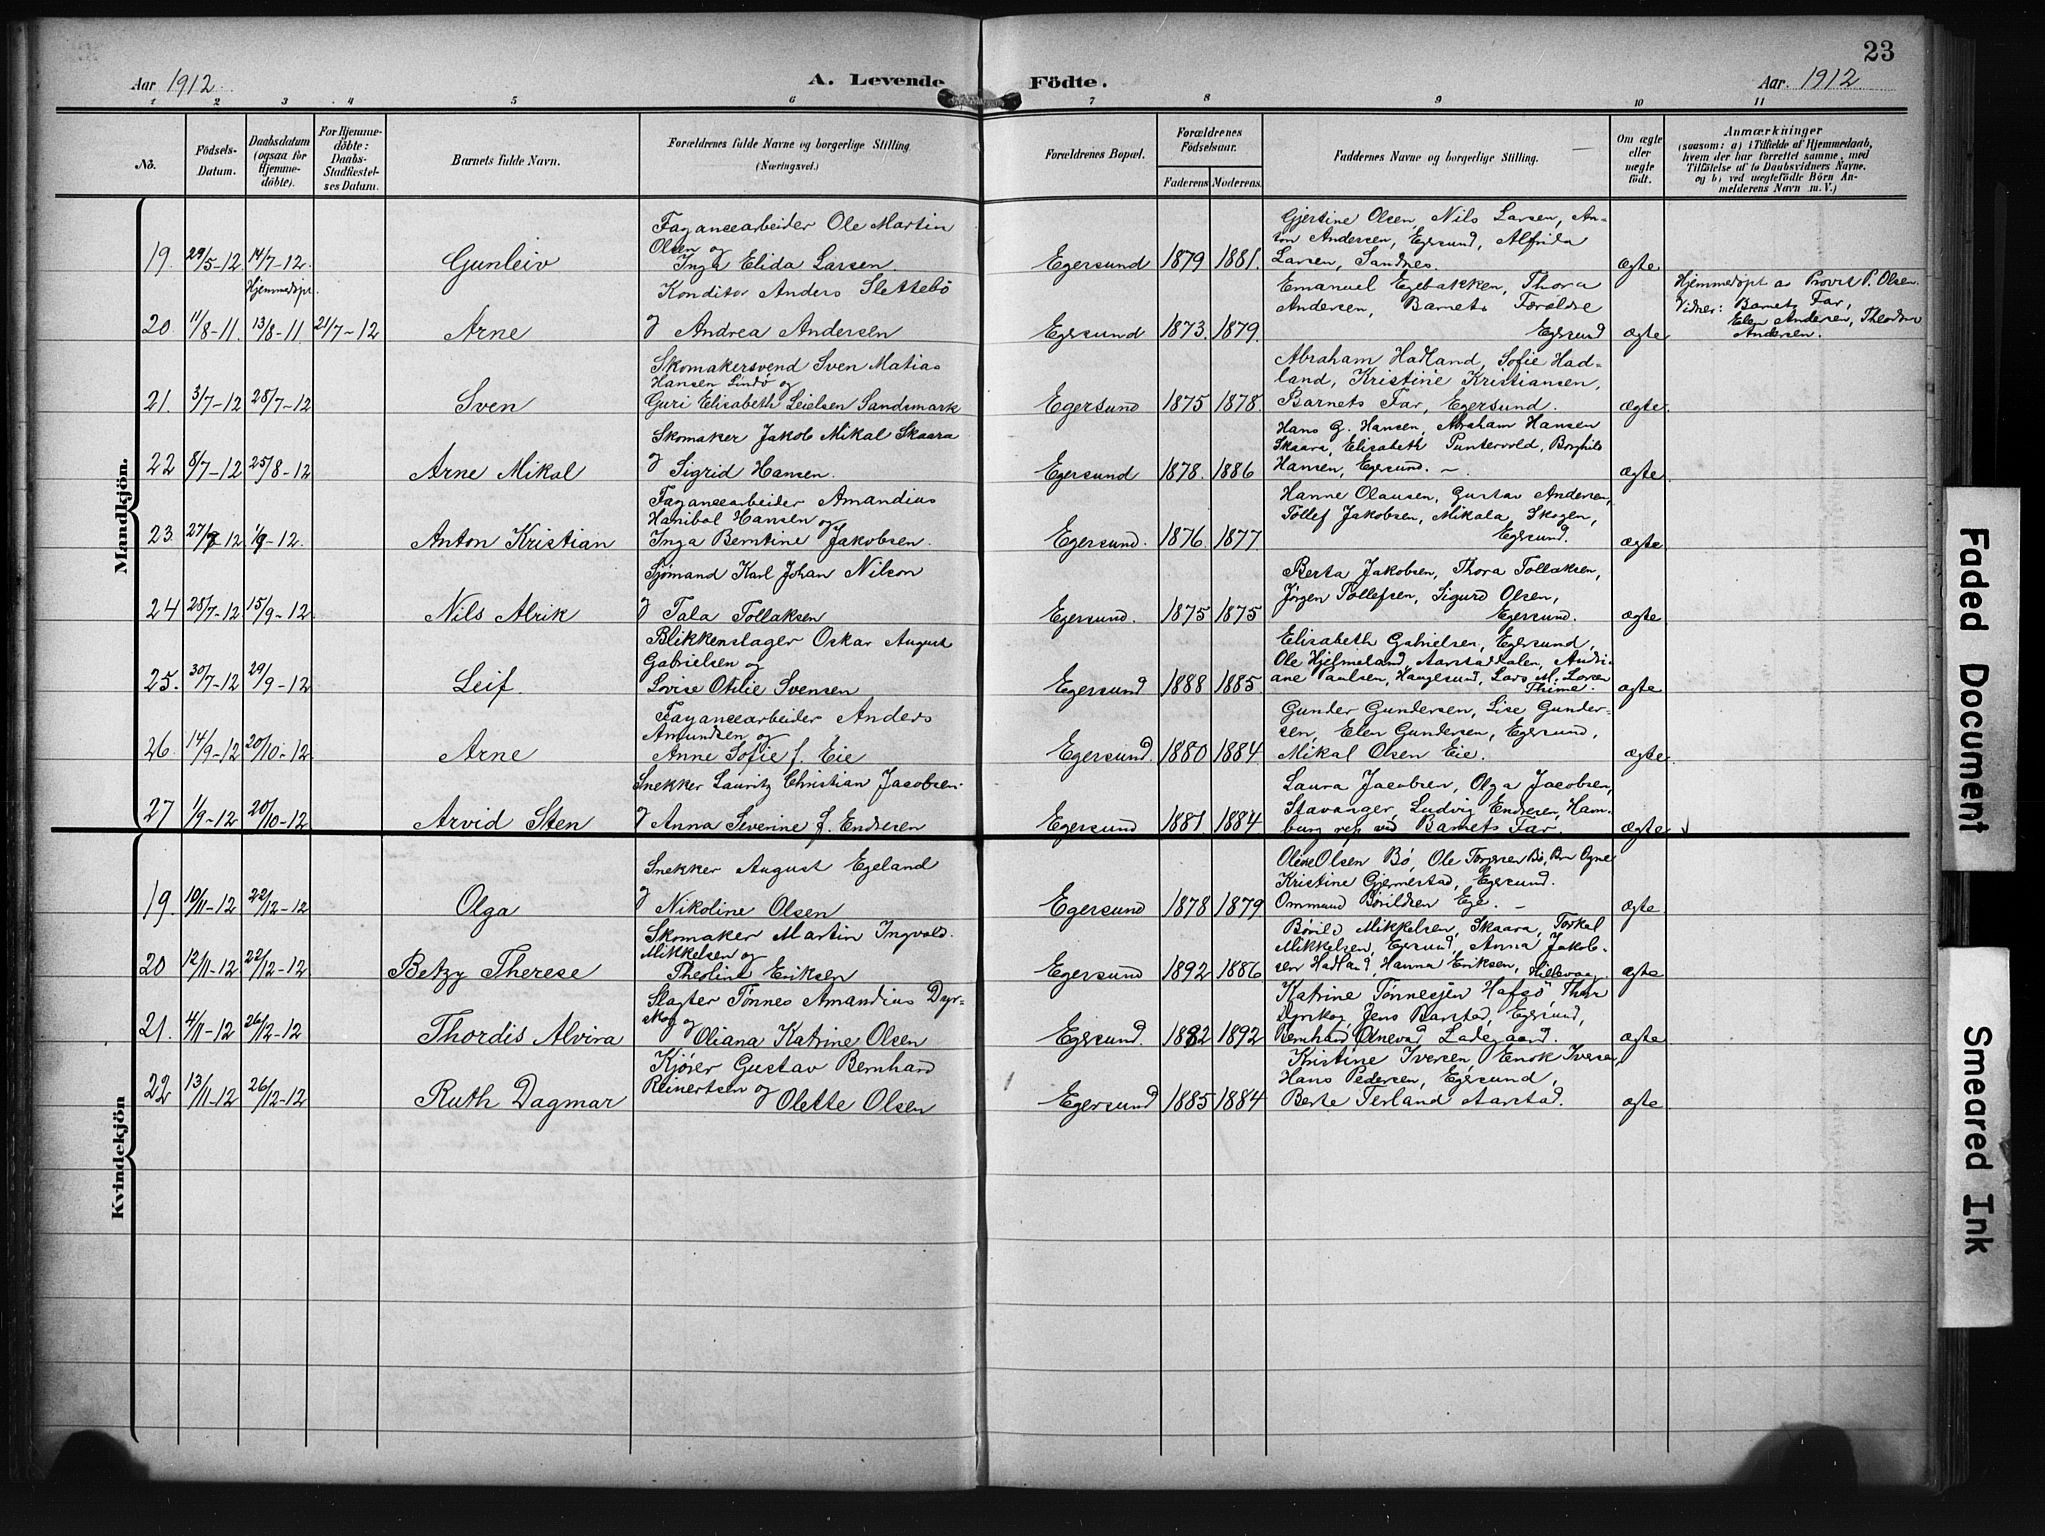 23
Aar 1912
A. Levende Födte.
Aar. 1912
1 2 3 4 5 6 7 8 9 10 11
No.
Födsels-
Datum.
Daabsdatum
(ogsaa for
Hjemme-
döbte).
For Hjemme-
döbte:
Daabs-
Stadfæstel-
ses Datum.
Barnets fulde Navn.
Forældrenes fulde Navne og borgerlige Stilling
(Næringsvei.)
Forældrenes Bopæl.
Forældrenes
Födselsaar.
Faderens
Moderens.
Faddernes Navne og borgerlige Stilling.
Om ægte
eller
uægte
födt.
Anmærkninger
(saasom: a) i Tilfælde af Hjemmedaab,
hvem der har forrettet samme, med
Tilföielse af to Daabsvidners Navne.
og b) ved uægtefödte Börn An-
melderens Navn m. V.)
Mandkjön.
19. 29/5-12 14/7-12. Gunleiv
Fayancearbeider Ole Martin
Olsen og
Inga Elida Larsen.
Egersund 1879 1881.
Gjertine Olsen, Nils Larsen, An-
ton Andersen, Egersund, Alfrida
Larsen, Sandnes.
ægte
Hjemmedøpt.
20. 11/8-11. 13/8-11 21/7-12 Arne
Konditor Anders Slettebö
og Andrea Andersen
Egersund 1873. 1879.
Emanuel Egebakken, Thora
Andersen, Barnets Foreldre
Egersund
ægte
Hjemmedøpt av Provst P. Olsen.
Vidner: Barnets Far,
Elen Andersen, Theodor
Andersen.
21. 3/7-12 28/7-12 Sven
Skomakersvend Sven Matias
Hansen Lindö og
Guri Elisabeth Leielsen Sandsmark
Egersund 1875 1878.
Abraham Hadland, Sofie Had-
land, Kristine Kristiansen,
Barnets Far, Egersund.
ægte.
22 8/7-12 25/8-12 Arne Mikal
Skomaker Jakob Mikal Skaara
og Sigrid Hansen.
Egersund 1878. 1886
Hans G. Hansen, Abraham Hansen
Skaara, Elisabeth Puntervold, Borghild
Hansen, Egersund. —
ægte
23. 27/7-12 1/9-12. Anton Kristian
Fayancearbeider Amandius
Hanibal Hansen og
Inga Berntine Jakobsen.
Egersund. 1876. 1877
Hanne Olausen, Gustav Andersen,
Tollef Jakobsen, Mikala Skogen,
Egersund.
ægte.
24 28/7-12 15/9-12 Nils Alrik
Sjömand Karl Johan Nilson
og Tala Tollaksen
Egersund. 1875 1875
Berta Jakobsen, Thora Tollaksen,
Jörgen Tollefsen, Sigurd Olsen,
Egersund.
ægte
25. 30/7-12 29/9-12 Leif.
Blikkenslager Oskar August
Gabrielsen og
Lovise Otilie Svensen
Egersund 1888 1885.
Elisabeth Gabrielsen, Egersund,
Ole Hjelmeland, Aarstaddalen, Andri-
ane Paulsen, Haugesund, Lars M. Larsen
Thime.
ægte
26. 14/9-12 20/10-12 Arne
Fayancearbeider Anders
Amundsen og
Anne Sofie f. Eie
Egersund. 1880 1884
Gunder Gundersen, Lise Gunder-
sen, Elen Gundersen, Egersund,
Mikal Olsen Eie.
ægte.
27 1/9-12 20/10-12 Arvid Sten
Snekker Lauritz Christian Jacobsen
og Anna Severine f. Endresen
Egersund 1881 1884
Laura Jacobsen, Olga Jacobsen,
Stavanger, Ludvig Endresen, Ham-
burg rep ved Barnets Far.
ægte
Kvindekjön
19. 10/11-12 22/12-12 Olga
Snekker August Egeland
og Nikoline Olsen
Egersund 1878 1879
Olive Olsen Bö, Ole Torgersen Bö, Bru Ogne
Kristine Gjermestad, Egersund.
Ommund Börildsen Ege. —
ægte.
20 12/11-12 22/12-12 Betzy Therese
Skomaker Martin Ingvald.
Mikkelsen og
Theoline Eriksen
Egersund 1892 1886
Börild Mikkelsen, Skaara, Torkel
Mikkelsen, Egersund, Anna Jakob-
sen Hadland, Hanna Eriksen, Hillevaag.
ægte
21. 4/11-12 26/12-12 Thordis Alvira
Slagter Tönnes Amandius Dyr-
skog og
Oliana Katrine Olsen
Egersund. 1882 1892
Katrine Tönnesen Hafsö, Thor
Dyrskog, Jens Barstad, Egersund,
Bernhard Ølnevad Ladegaard.
ægte
22 13/11-12 26/12-12 Ruth Dagmar
Kjörer Gustav Bernhard
Reinertsen og
Olette Olsen
Egersund 1885 1884
Kristine Iversen, Enok Iversen,
Hans Pedersen, Egersund,
Berte Terland Aarstad.
ægte.
Faded Document
Smeared Ink